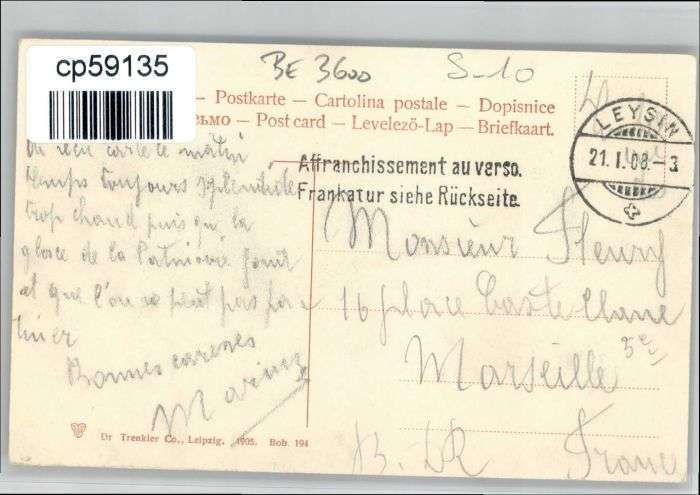 cp59135
BE 3600
S-10
— Postkarte — Cartolina postale — Dopisnice
ьмо — Post card — Levelezö-Lap — Briefkaart.
LEYSIN
21.I.08.-3
Affranchissement au verso.
Frankatur siehe Rückseite.
reçu carte ce matin
temps toujours splendide
trop chaud puis que la
glace de la Patinoire fond
et que l'on ne peut pas pa-
tiner
Bonnes caresses
Monsieur Fleury
16 place Castellane
5e
Marseille
B. d. R. France
Dr Trenkler Co., Leipzig. 1905. Bob. 194